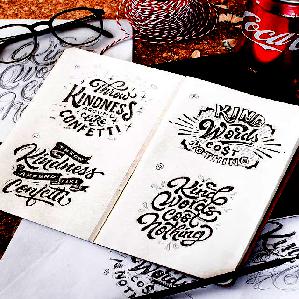 Throw
KINDNESS
around
like
CONFETTI
THROW
Kindness
AROUND LIKE
Confetti
KIND
Words
COST
NOTHING
Kind
Words
Cost
Nothing
Coca
Words
COST
NOTHING